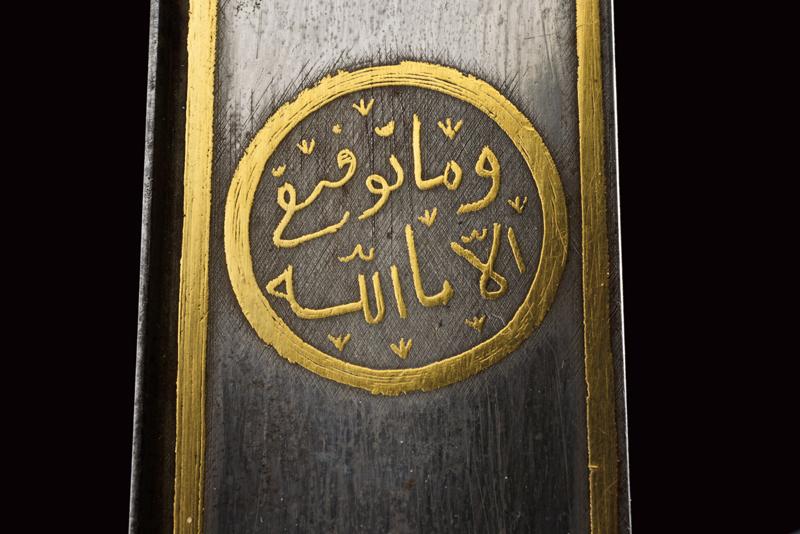 وما توفيقي
الا بالله